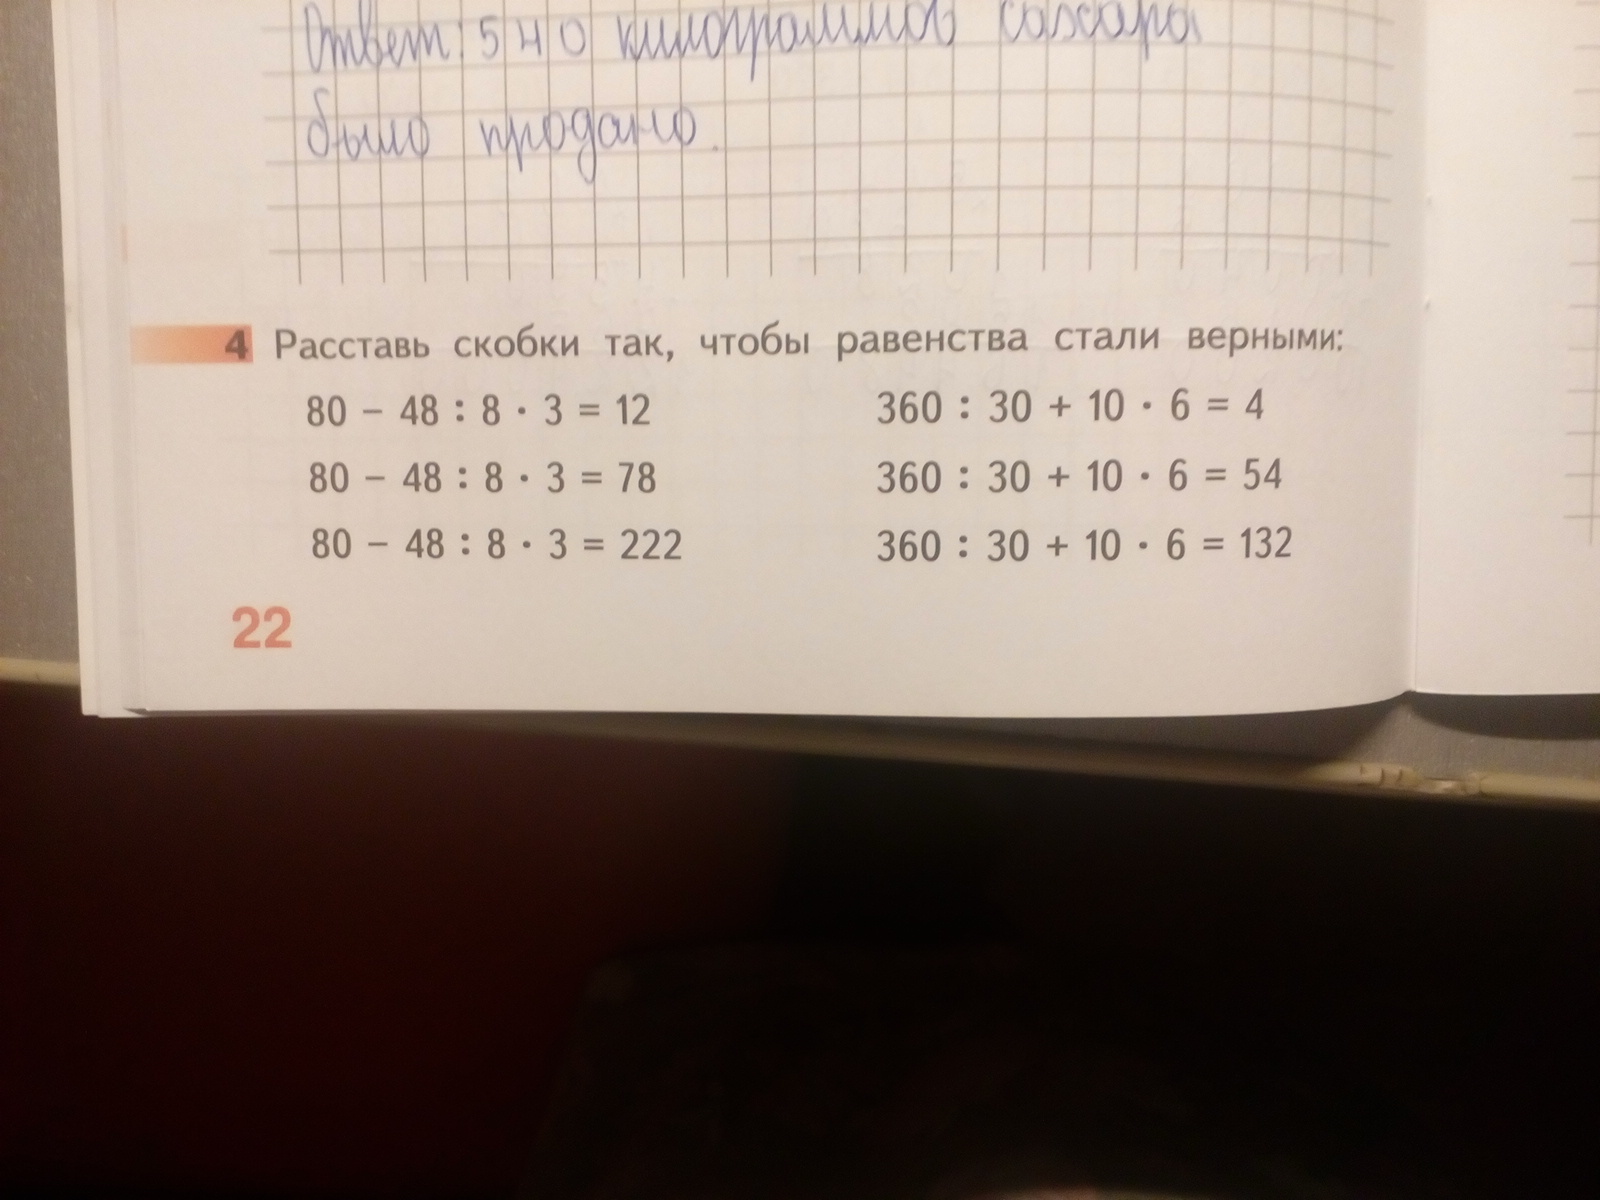 Ответ: 540 килограммов сахара
было продано.
4 Расставь скобки так, чтобы равенства стали верными:
80 – 48 : 8 · 3 = 12
80 – 48 : 8 · 3 = 78
80 – 48 : 8 · 3 = 222
360 : 30 + 10 · 6 = 4
360 : 30 + 10 · 6 = 54
360 : 30 + 10 · 6 = 132
22